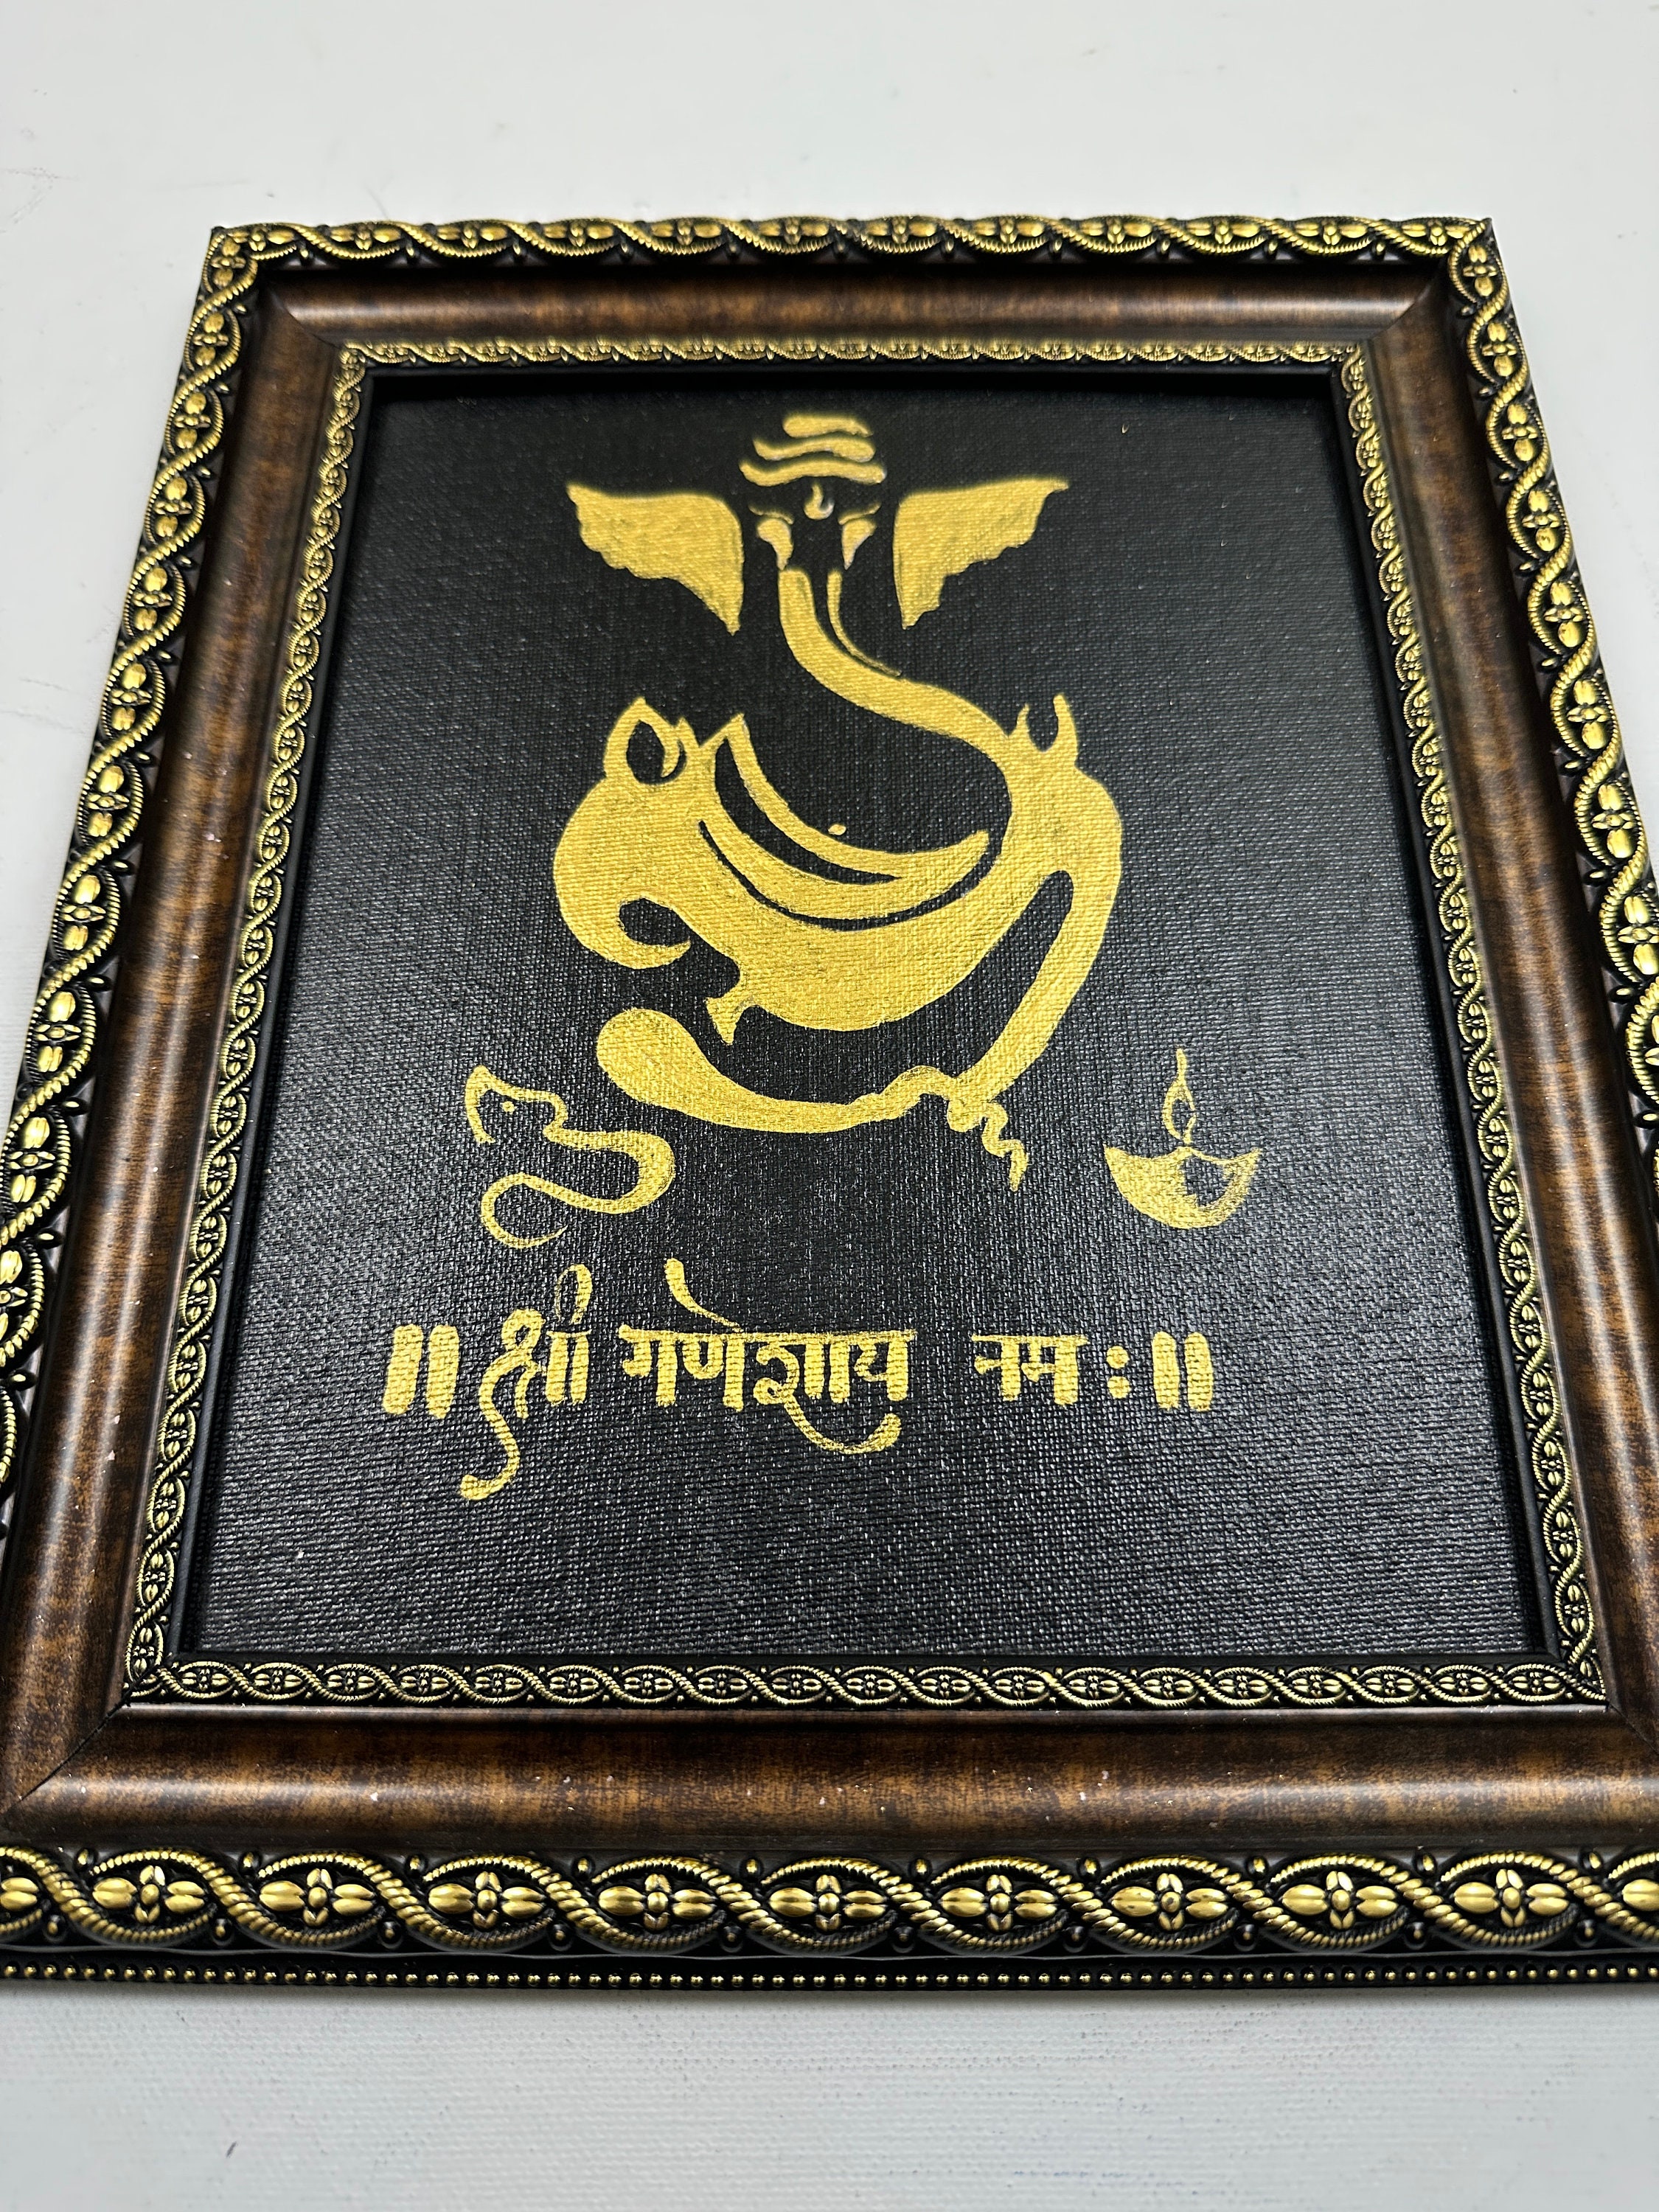 ॥ श्री गणेशाय नमः ॥